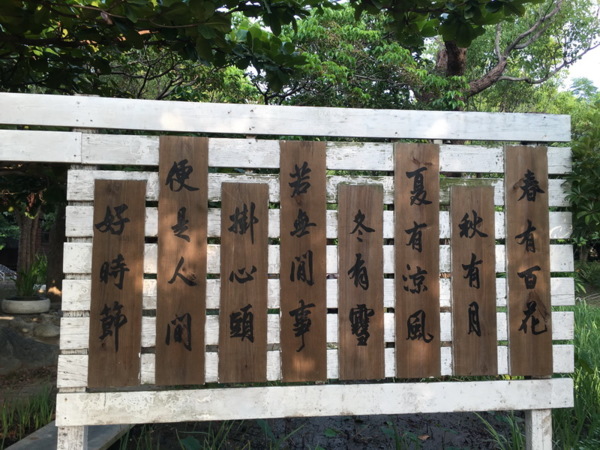 春有百花
秋有月
夏有涼風
冬有雪
若無閒事
掛心頭
便是人間
好時節